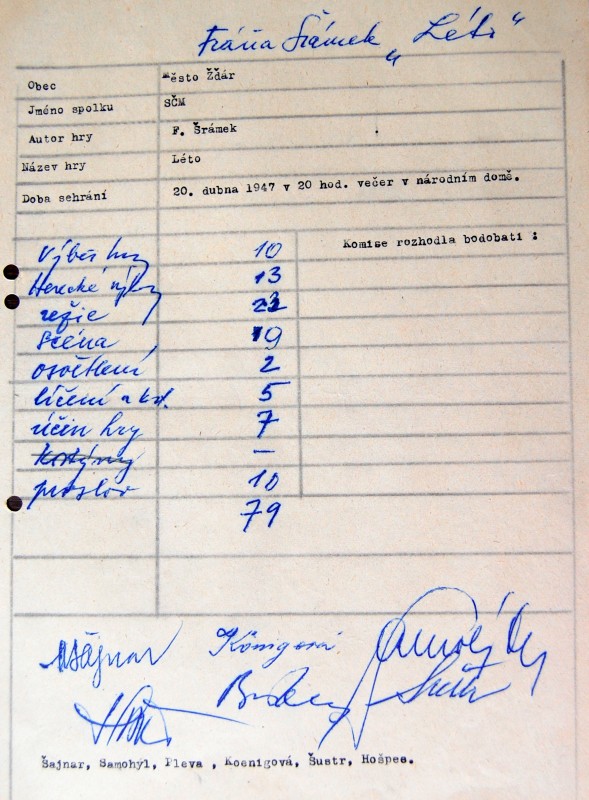 Fráňa Šrámek „Léto"
Obec Město Žďár
Jméno spolku SČM
Autor hry F. Šrámek
Název hry Léto
Doba sehrání 20. dubna 1947 v 20 hod. večer v národním domě.
Komise rozhodla bodobati :
Výběr hry 10
Herecké výkony 13
režie
scéna 9
osvětlení 2
líčení a kost. 5
účin hry 7
Kostýmy –
proslov 10
79
MŠajnar Königová
Šustr
Šajnar, Samohýl, Pleva , Koenigová, Šustr, Hošpes.